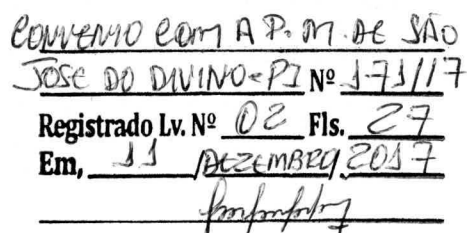 CONVENIO COM A P. M. DE SÃO
JOSE DO DIVINO-PI Nº 171/17
Registrado Lv. Nº 02 Fls. 27
Em, 11 /DEZEMBRO/ 2017